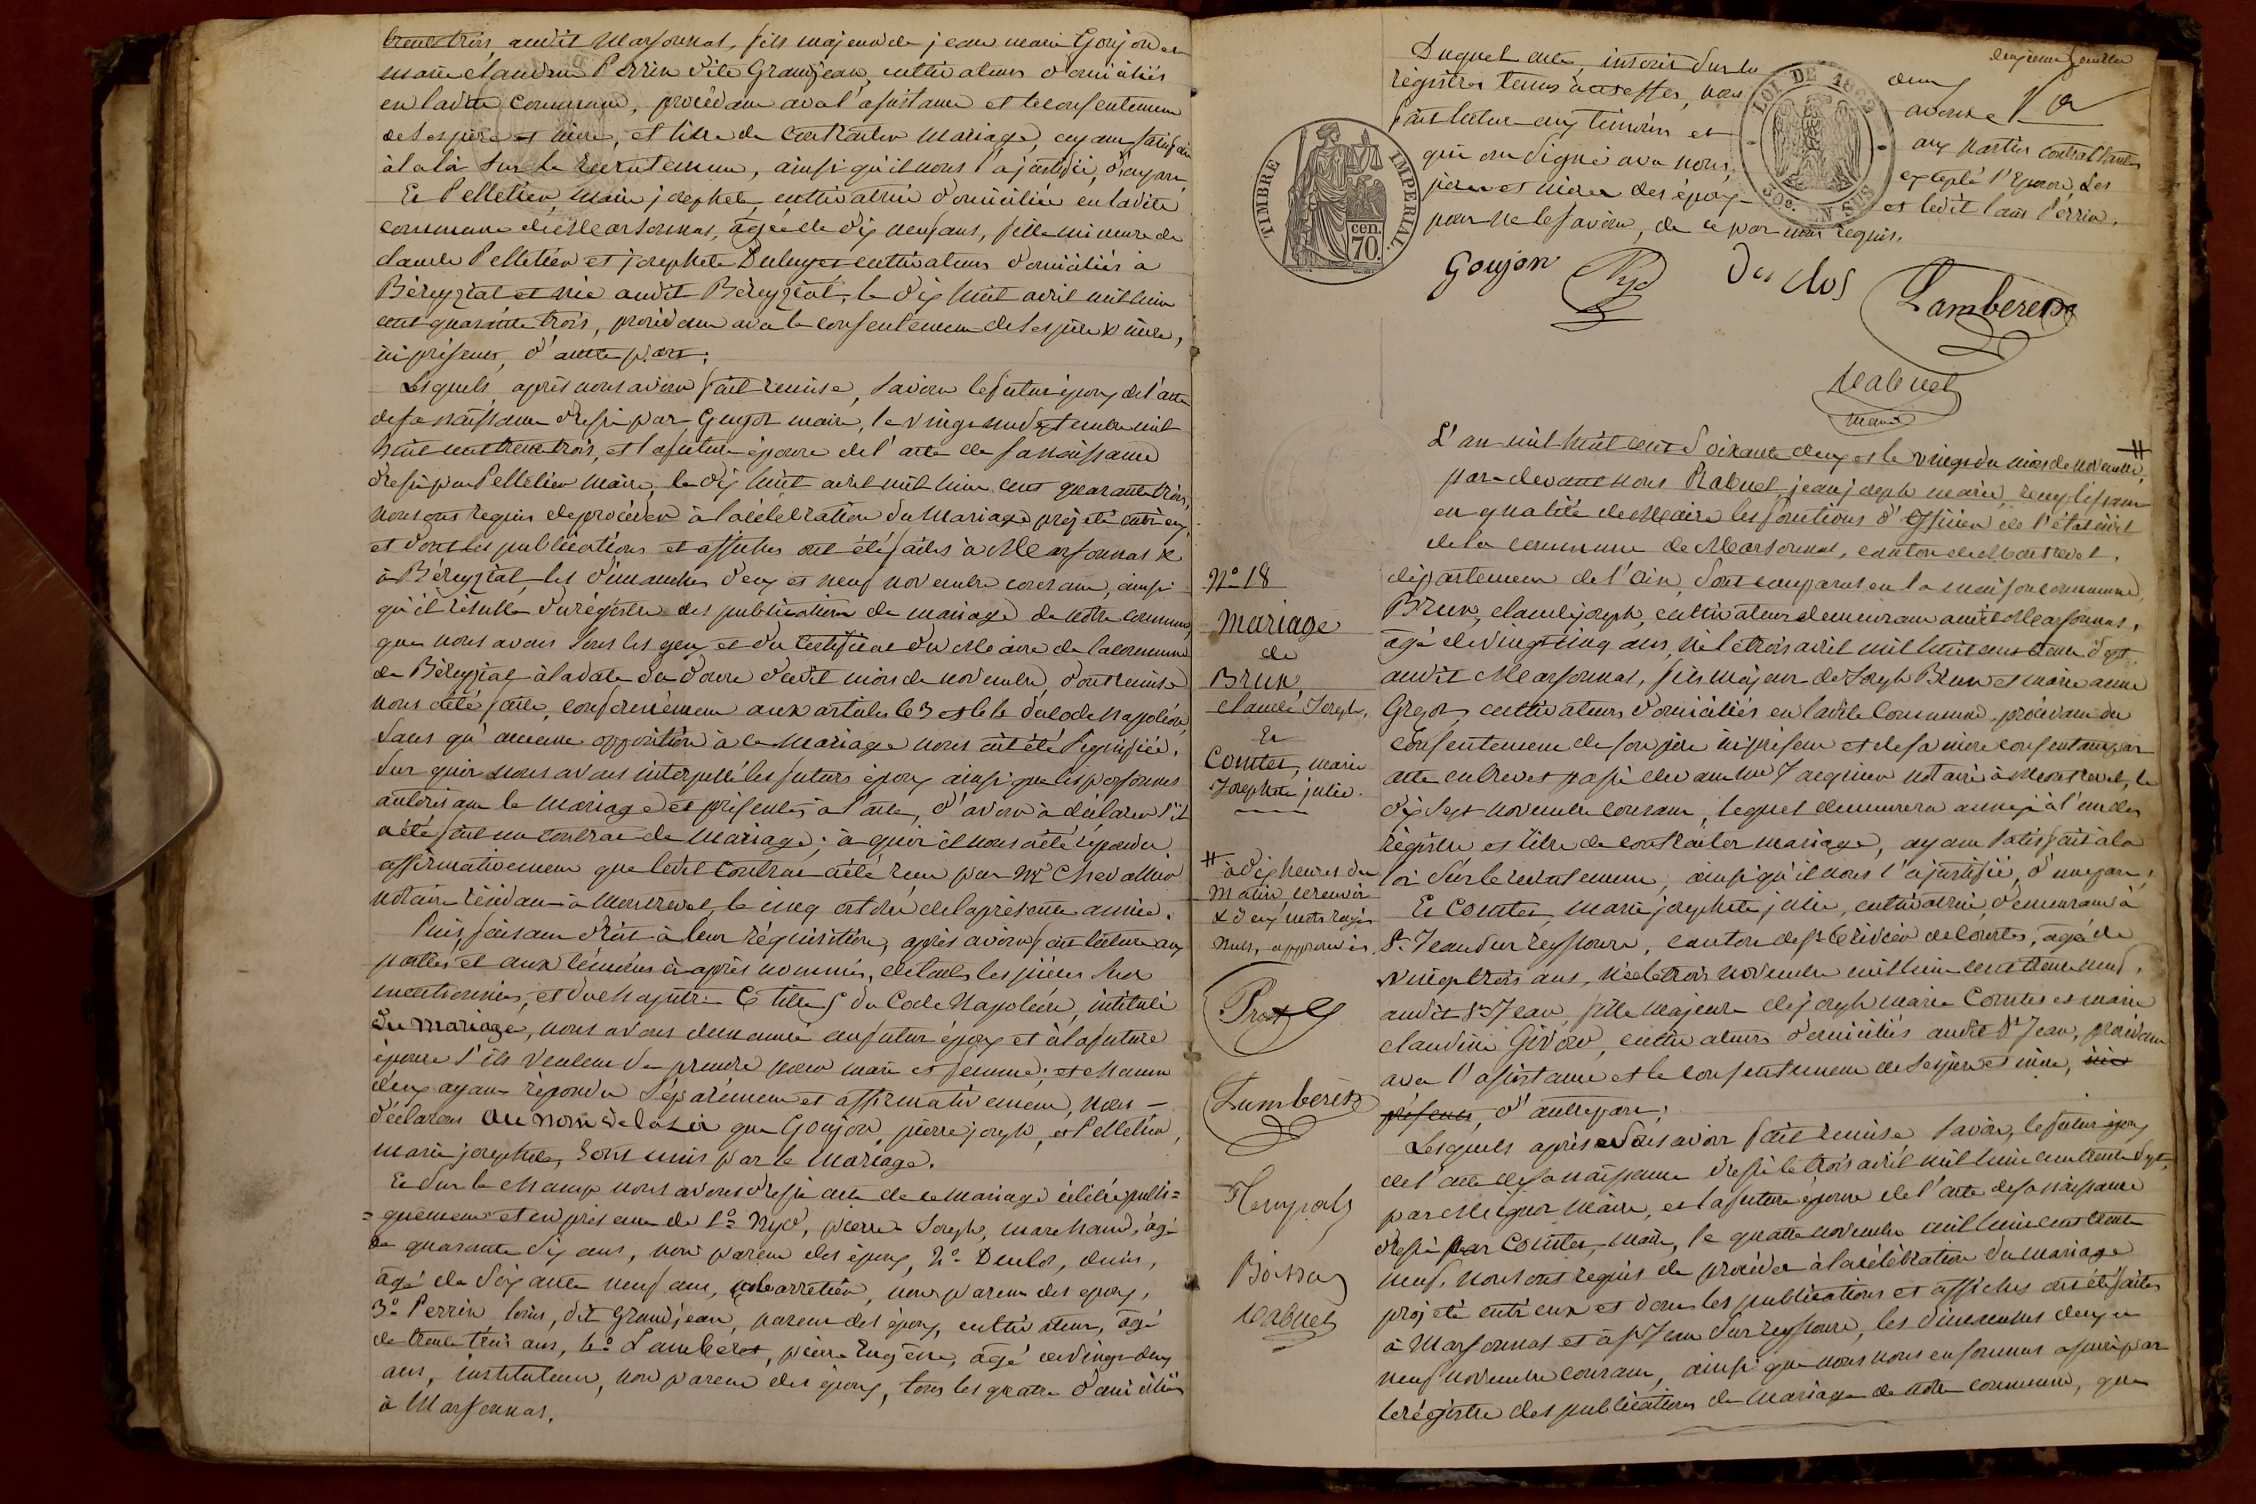 trente trois, audit Marsonnas, fils majeur de jean marie Goujon et
marie claudine Perrin dite Grandjean, cultivateurs domiciliés
en ladite commune, procédant avec l'assistance et le consentement
de ses père et mère, et libre de contracter mariage, ayant satisfait
à la loi sur le recrutement, ainsi qu'il nous l'a justifié, d'une part
Et Pelletier, Marie josephete, cultivatrice domiciliée en ladite
commune de Marsonnas, âgée de dix neuf ans, fille mineure de
claude Pelletier et josephete cultivateurs domiciliés à
Béreyziat et née audit Béreyziat, le dix huit avril mil huit
cent quarante trois, procédant avec le consentement de ses père & mère,
ici présents, d'autre part;
Lesquels, après nous avoir fait remise, savoir le futur époux de l'acte
de sa naissance dressé par Guyot maire, le vingt neuf mil
huit cent trente trois, et la future épouse de l'acte de sa naissance
dressé par Pelletier Maire, le dix huit avril mil huit cent quarante trois,
nous ont requis de procéder à la célébration du Mariage projeté entr'eux
et dont les publications et affiches ont été faites à Marsonnas &
à Béreyziat, les dimanches deux et neuf novembre courant, ainsi
qu'il résulte du régistre des publications de mariage de notre commune,
que nous avons sous les yeux et du Certificat du Maire de la commune
de Béreyziat à la date du douze dudit mois de novembre, dont remise
nous a été faite, conformément aux articles 63 et 64 du Code Napoléon,
sans qu'aucune opposition à ce Mariage nous ait été signifiée.
Sur quoi nous avons interpellé les futurs époux ainsi que les personnes
autorisant le mariage et présentes à l'acte, d'avoir à déclarer s'il
a été fait un contrat de mariage; à quoi il nous a été répondu
affirmativement que ledit contrat a été reçu par Me Chevallier
notaire résidant à Montrevel, le cinq octobre de la présente année.
Puis, faisant droit à leur réquisition, après avoir fait lecture aux
parties et aux témoins ci-après nommés, de toutes les pièces sus
mentionnées, et du chapitre 6 titre 5 du Code Napoléon, intitulé
du Mariage, nous avons demandé au futur époux et à la future
épouse s'ils veulent se prendre pour mari et femme; et chacun
d'eux ayant répondu séparément et affirmativement, nous
déclarons au nom de la Loi que Goujon, pierre joseph, et Pelletier,
marie josephete, sont unis par le mariage.
Et sur le champ nous avons dressé acte de ce mariage célébré publi=
=quement et en présence de 1o Nyd, pierre Joseph, marchand, âgé
de quarante six ans, non parent des époux, 2o Duclos, denis,
âgé de soixante neuf ans, cabarretier, non parent des époux,
3o Perrin, louis, dit Grandjean, parent des époux, cultivateur, âgé
de trente trois ans, 4o Lamberet, pierre Eugène, âgé de vingt deux
ans, instituteur, non parent des époux, tous les quatre domiciliés
à Marsonnas.
deuxième feuillet
Duquel acte, inscrit sur les deux
régistres tenus à cet effet, nous avons
fait lecture aux témoins et aux parties contractantes
qui ont signé avec nous, excepté l'épouse, les
pères et mères des époux et ledit louis Perrin,
pour ne le savoir, de ce par nous requis.
LOI DE 1862
30c. EN SUS
TIMBRE IMPERIAL.
cen. 70.
Goujon Nyd Duclos Lamberet
Rabuel
maire
No 18
Mariage
de
Brun,
claude Joseph,
Et
Comtet, marie
Josephete julie.
# à dix heures du
matin, le renvoi
& deux mots rayés
nuls, approuvés.
Prost
Lamberet
Boisson
Rabuel
L'an mil huit cent soixante deux et le vingt du mois de novembre, #
par-devant nous Rabuel, jean joseph marie, remplissant
en qualité de Maire les fonctions d'officier de l'état civil
de la commune de Marsonnas, canton de Montrevel,
département de l'ain, sont comparus en la maison commune,
Brun, claude joseph, cultivateur demeurant audit Marsonnas,
âgé de vingt cinq ans, né le trois avril mil huit cent trente sept
audit Marsonnas, fils majeur de Joseph Brun et marie anne
cultivateurs domiciliés en ladite Commune, procédant du
consentement de son père ici présent et de sa mère consentant par
acte en brevet passé devant Me Jacquier notaire à Montrevel, le
dix sept novembre courant, lequel demeurera annexé à l'un des
régistres et libre de contracter mariage, ayant satisfait à la
loi sur le recrutement, ainsi qu'il nous l'a justifié, d'une part,
Et Comtet, marie josephete julie, cultivatrice, demeurant à
St Jean sur reyssouze, canton de St Trivier de Courtes, âgée de
vingt trois ans, née le trois novembre mil huit cent trente neuf,
audit St Jean, fille majeure de joseph marie Comtet et marie
claudine Givord, cultivateurs domiciliés audit St Jean, procédant
avec l'assistance et le consentement de ses père et mère, ici
présents, d'autre part;
Lesquels après nous avoir fait remise, savoir, le futur époux
de l'acte de sa naissance dressé le trois avril mil huit cent trente sept,
par maire, et la future épouse de l'acte de sa naissance
dressé par Comtet, maire, le quatre novembre mil huit cent trente
neuf, nous ont requis de procéder à la célébration du mariage
projeté entr'eux et dont les publications et affiches ont été faites
à Marsonnas et à St Jean sur reyssouze, les dimanches deux et
neuf novembre courant, ainsi que nous nous en sommes assuré par
le régistre des publications de mariage de notre commune, que